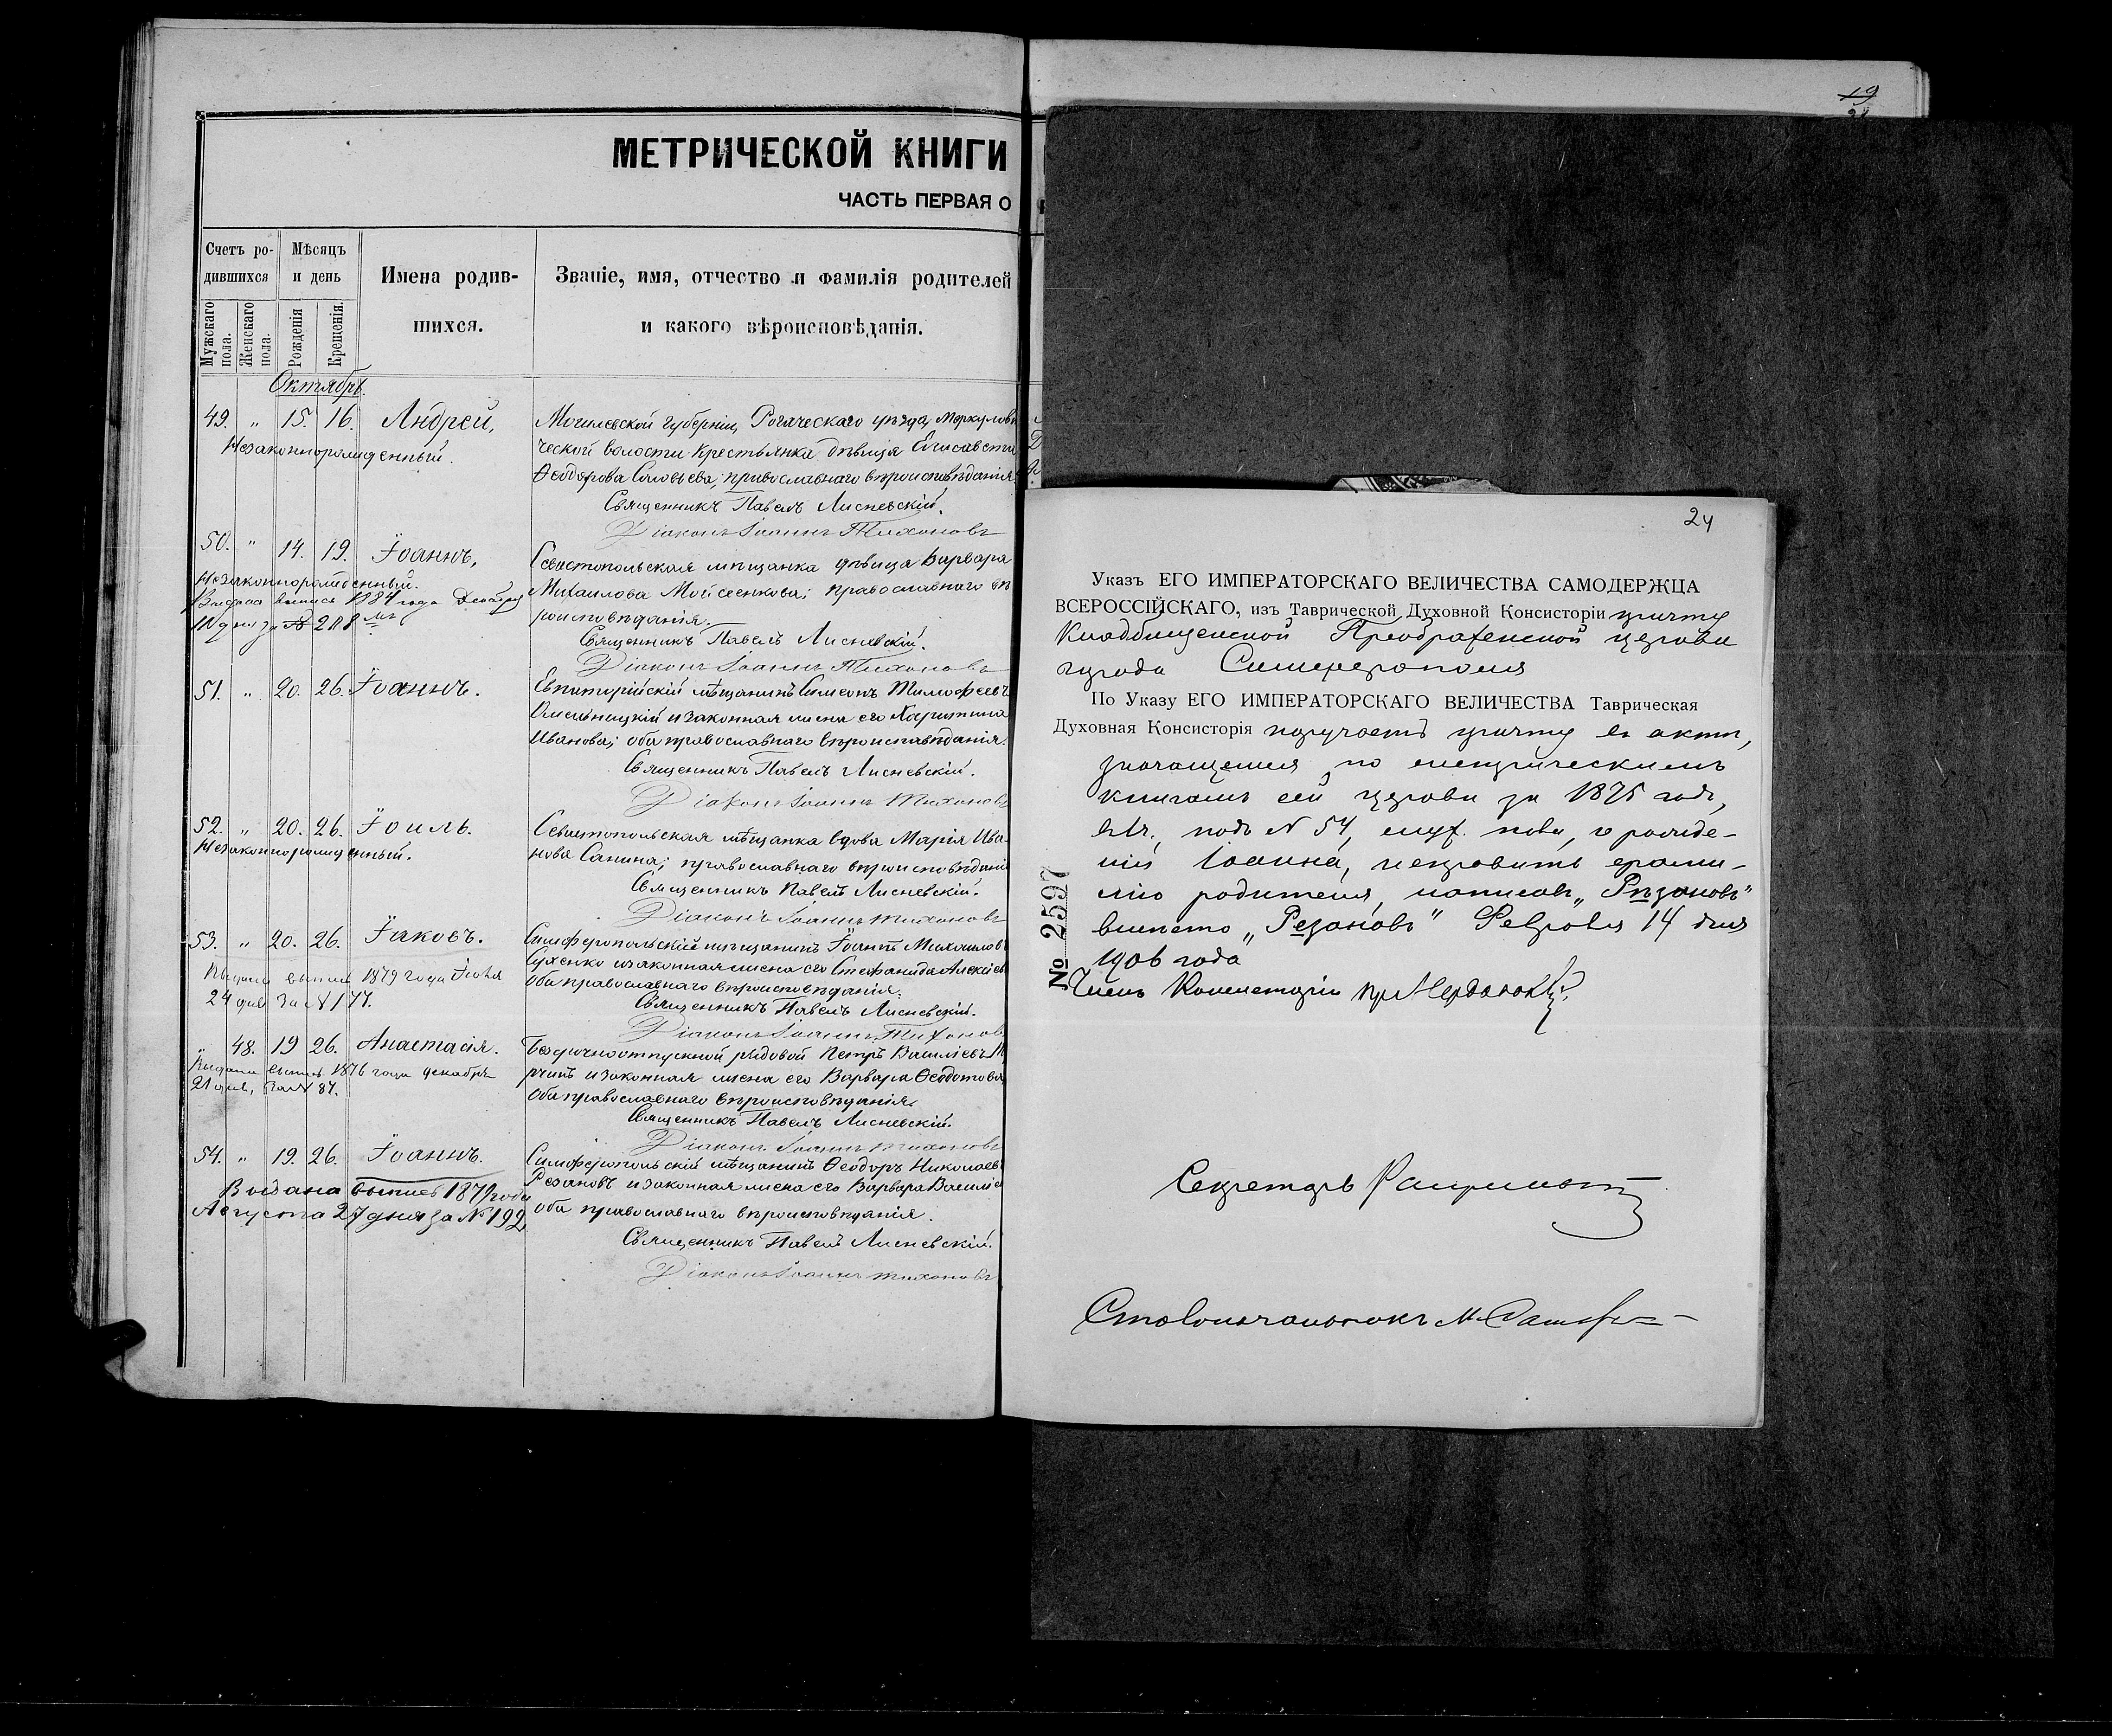 МЕТРИЧЕСКОЙ КНИГИ
ЧАСТЬ ПЕРВАЯ О
Счетъ ро-
дившихся
Мужскаго пола.
Женскаго пола.
Мѣсяцъ
и день
Рожденія
Крещенія.
Имена родив-
шихся.
Званіе, имя, отчество и фамилія родителей
и какого вѣроисповѣданія.
Октябрь.
49. " 15. 16. Андрей,
Незаконнорожденный.
Могилевской губерніи, Рогаческаго уѣзда, Меркулови
ческой волости крестьянка дѣвица Елисавета
Ѳеодорова Соловьева; православнаго вѣроисповѣданія.
Священникъ Павелъ Лисневскій.
Діаконъ Іоаннъ Тихоновъ
50. " 14. 19. Іоаннъ,
Незаконнорожденный.
Выдана выпись 1884 года Декабря
Севастопольская мѣщанка дѣвица Варвара
Михаилова Мойсеенкова; православнаго вѣ
роисповѣданія.
Священникъ Павелъ Лисневскій.
Діаконъ Іоаннъ Тихоновъ
51. " 20. 26. Іоаннъ.
Евпаторійскій мѣщанинъ Симеонъ Тимофеевъ
Омельницкій и законная жена его Харитина
Иванова; оба православнаго вѣроисповѣданія.
Священникъ Павелъ Лисневскій.
Діаконъ Іоаннъ Тихоновъ
52. " 20. 26. Іоиль.
Незаконнорожденный.
Севастопольская мѣщанка вдова Марія Ива-
нова Санина; православнаго вѣроисповѣданія
Священникъ Павелъ Лисневскій.
Діаконъ Іоаннъ Тихоновъ
53. " 20. 26. Іаковъ.
Выдана выпись 1879 года Іюля
24 дня за № 177.
Симферопольскій мѣщанинъ Іоаннъ Михаиловъ
Сухенко и законная жена его Стефанида Алексіев
оба православнаго вѣроисповѣданія.
Священникъ Павелъ Лисневскій.
Діаконъ Іоаннъ Тихоновъ
48. 19 26. Анастасія.
Выдана выпись 1876 года декабря
21 дня, за № 87.
Безсрочноотпускной рядовой Петръ Василіевъ
и законная жена его Варвара Ѳеодотова
оба православнаго вѣроисповѣданія.
Священникъ Павелъ Лисневскій.
Діаконъ Іоаннъ Тихоновъ
54. " 19. 26. Іоаннъ.
Выдана выпись 1879 года
Августа 27 дня за № 192
Симферопольскій мѣщанинъ Ѳеодоръ Николаев
Резановъ и законная жена его Варвара Василіе
оба православнаго вѣроисповѣданія.
Священникъ Павелъ Лисневскій.
Діаконъ Іоаннъ Тихоновъ
19
24
Указъ ЕГО ИМПЕРАТОРСКАГО ВЕЛИЧЕСТВА САМОДЕРЖЦА
ВСЕРОССІЙСКАГО, изъ Таврической Духовной Консисторіи причту
Кладбищенской Преображенской церкви
города Симферополя
По Указу ЕГО ИМПЕРАТОРСКАГО ВЕЛИЧЕСТВА Таврическая
Духовная Консисторія поручаетъ причту въ актѣ,
значащемся по метрическимъ
книгамъ сей церкви за 1875 годъ,
подъ № 54, муж. пола, о рожде-
ніи Іоанна, исправить фами-
лію родителя, написавъ „Рѣзановъ"
вмѣсто „Резановъ" Февраля 14 дня
1906 года
№ 2597
Членъ Консисторіи
Секретарь
Столоначальникъ